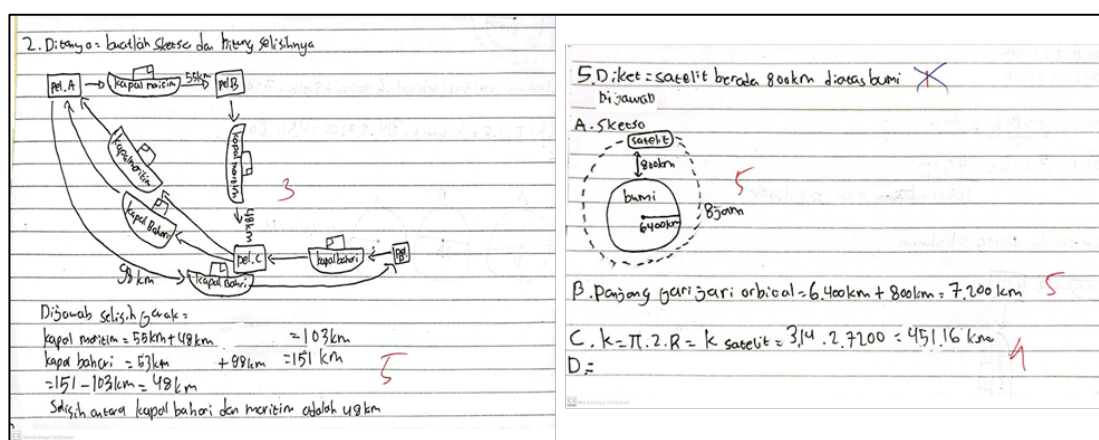 2. Ditanya = buatlah sketsa dan hitung selisihnya
pel. A
kapal maritim
55km
pel B
kapal maritim
kapal maritim
3
kapal Bahari
48km
pel. C
kapal bahari
98 km
kapal Bahri
Dijawab selisih jarak =
kapal maritim = 55km + 48km = 103km
kapal bahari = 53km + 98km = 151 km
5
= 151 - 103km = 48km
Selisih antara kapal bahari dan maritim adalah 48km
5. Diket = satelit berada 800km diatas bumi
Dijawab
A. Sketsa
satelit
800km
5
bumi
8 jam
6400km
B. Panjang jari jari orbital = 6.400km + 800km = 7.200 km 5
C. k = π.2.R = k satelit = 3,14 . 2.7200 = 451,16 km
4
D =